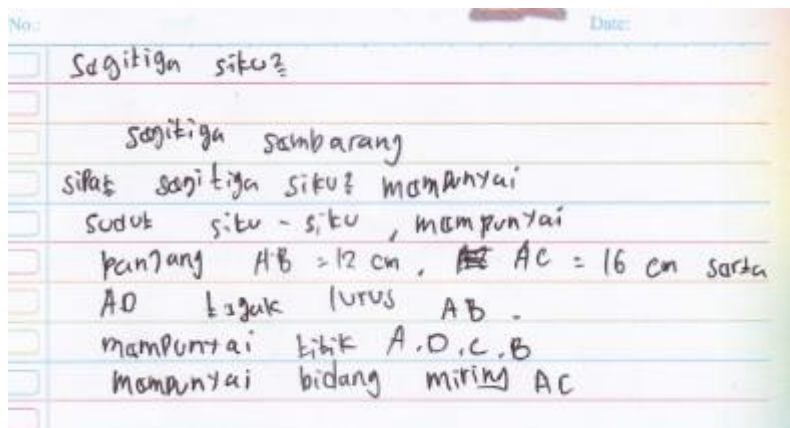 No.: Date:
Sagitiga siku2
sagitiga sambarang
sipat sagitiga siku2 mampunyai
sudut siku-siku, mampunyai
panjang AB = 12 cm, AC = 16 cm sarta
AD tagak lurus AB.
mampunyai titik A.D.C.B
mampunyai bidang miring AC